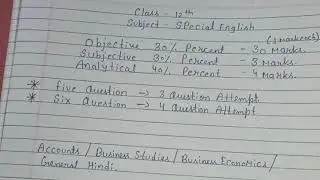 Class - 12th
Subject - SPecial English
(1 Marker each)
Objective 30% Percent - 30 Marks.
Subjective 30% Percent - 3 Marks.
Analytical 40% Percent - 4 Marks.
* five question → 3 Question Attempt
* Six Question → 4 Question Attempt
Accounts / Business Studies / Business Economics /
General Hindi.